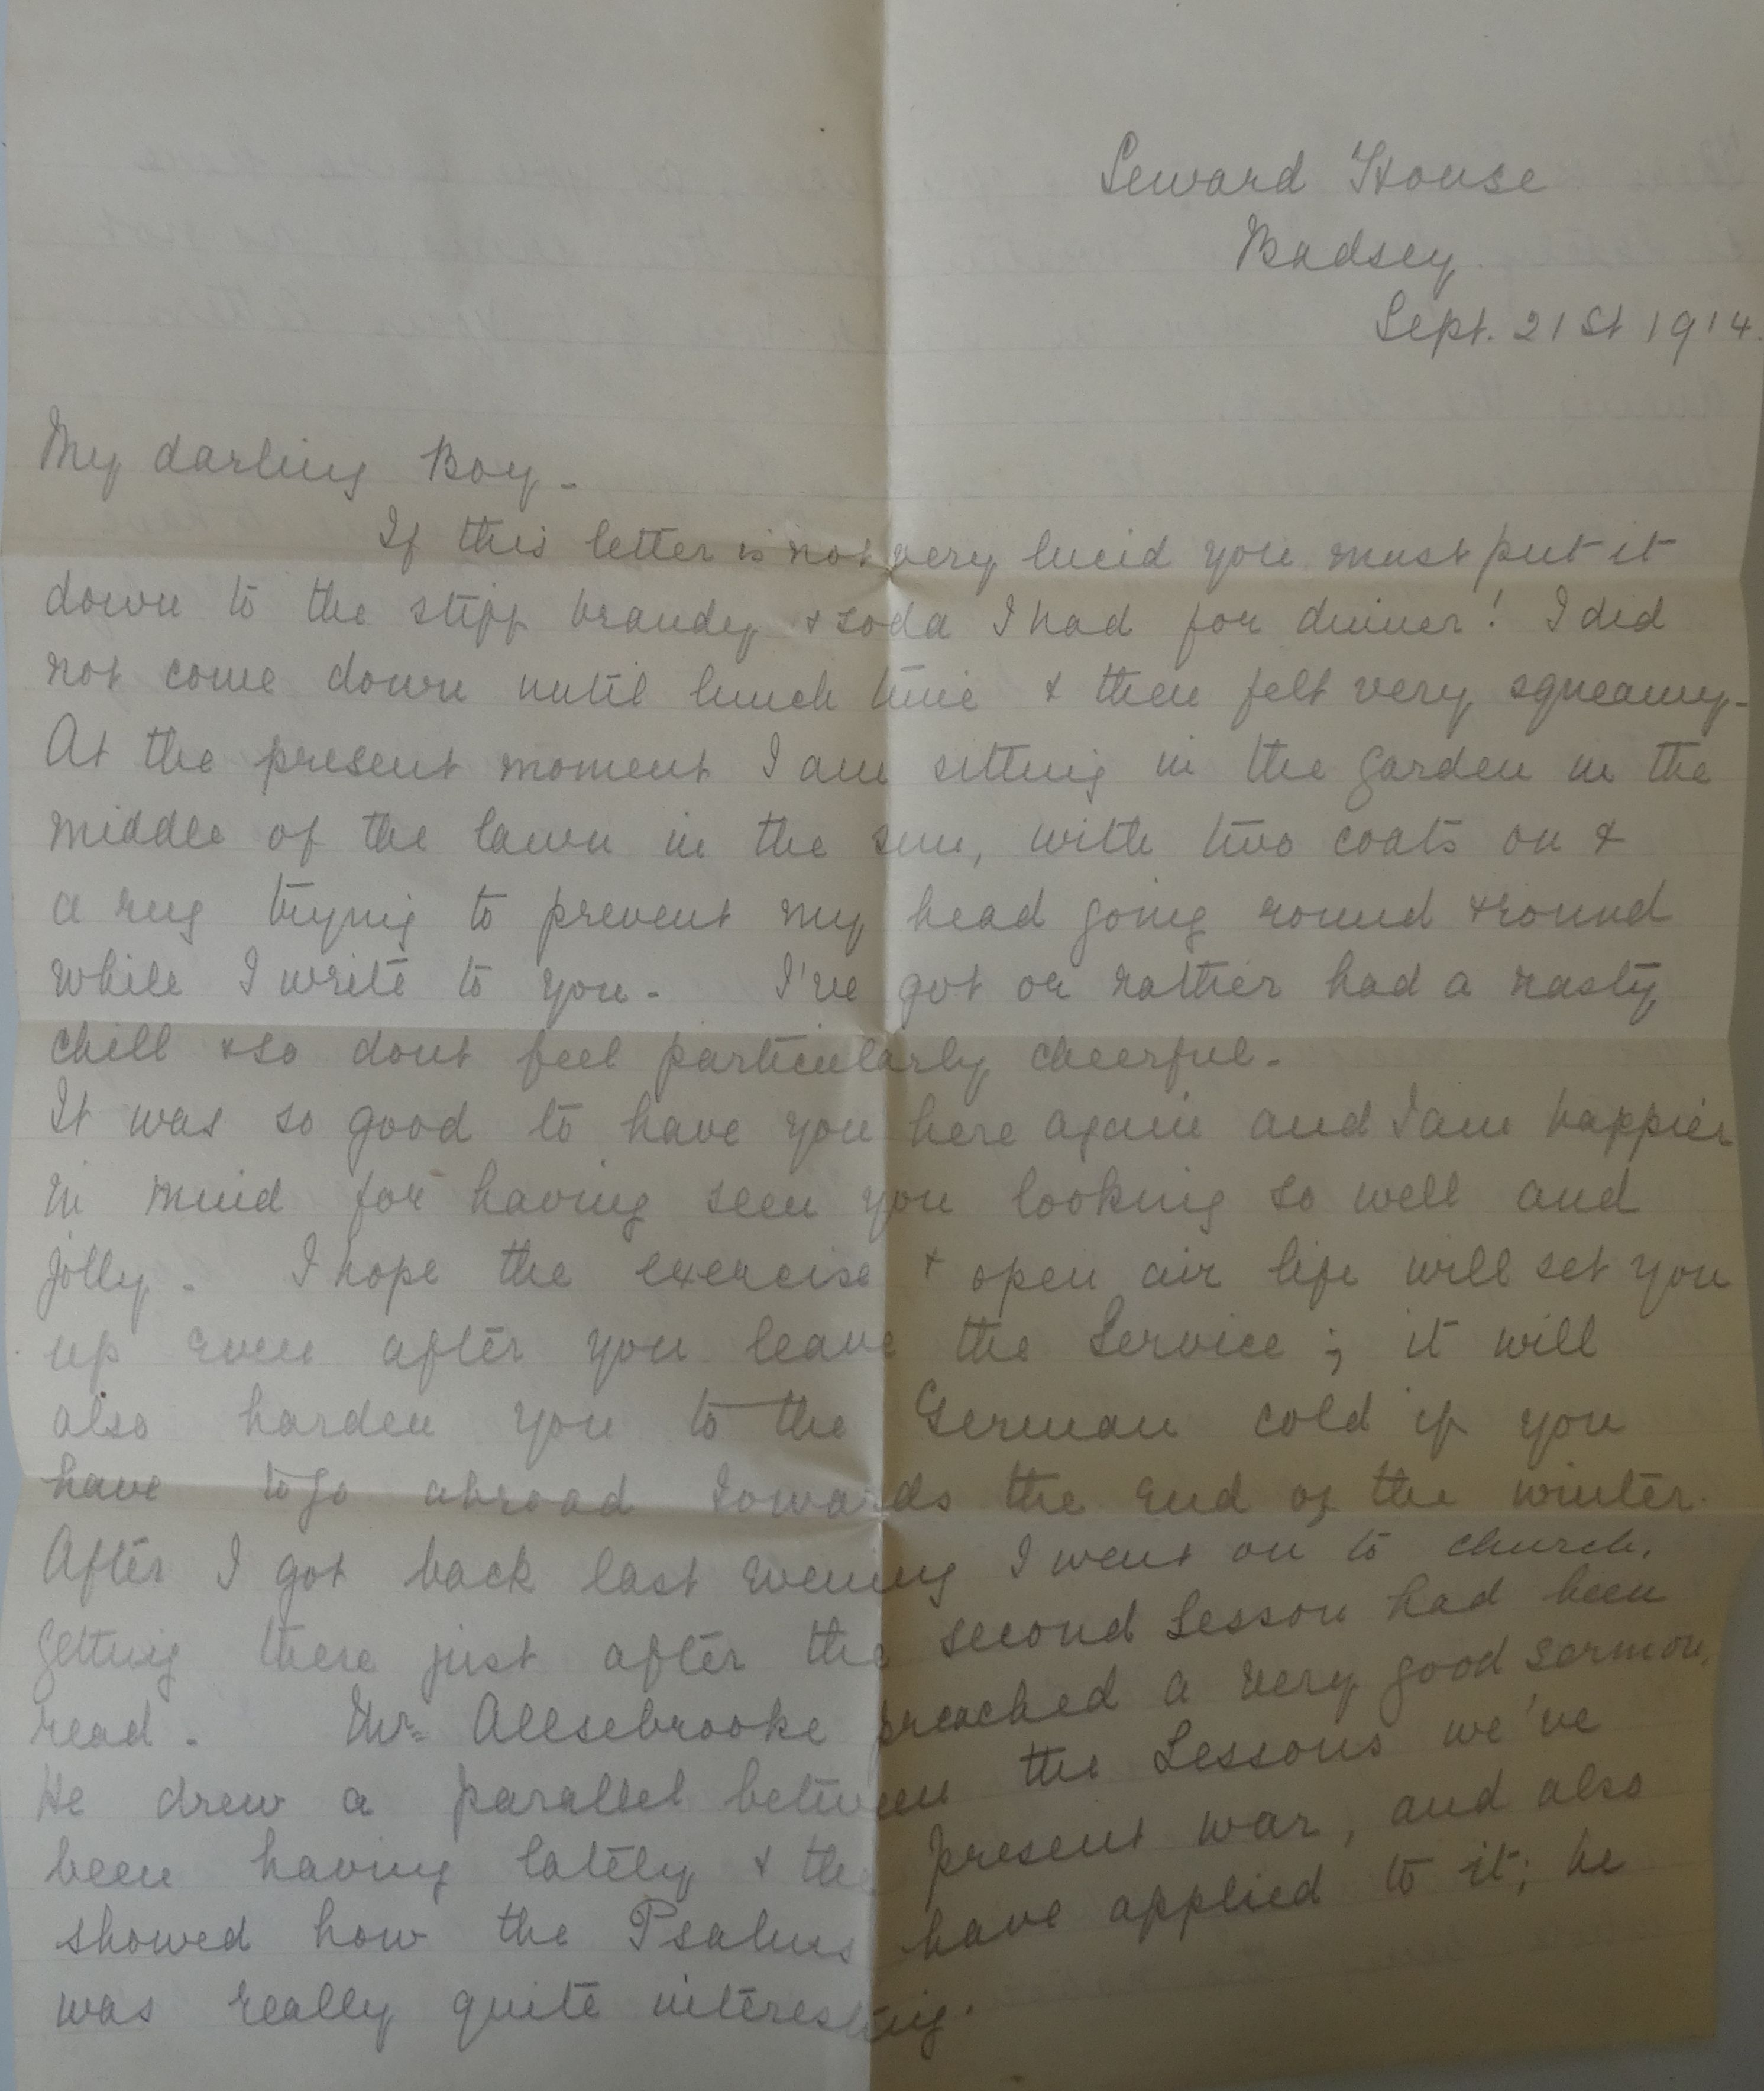 Seward House
Badsey
Sept. 21st 1914.
My darling Boy -
If this letter is not very lucid you must put it
down to the stiff brandy & soda I had for dinner! I did
not come down until lunch time & then felt very squeamy -
At the present moment I am sitting in the garden in the
middle of the lawn in the sun, with two coats on &
a rug trying to prevent my head going round & round
while I write to you - I've got or rather had a nasty
chill & so dont feel particularly cheerful -
It was so good to have you here again and I am happier
in mind for having seen you looking so well and
jolly - I hope the exercise & open air life will set you
up even after you leave the Service; it will
also harden you to the German cold if you
have to go abroad towards the end of the winter.
After I got back last evening I went on to church,
getting there just after the second Lesson had been
read - Mr. Allsebrooke preached a very good sermon,
He drew a parallel between the Lessons we've
been having lately & the present war, and also
showed how the Psalms have applied to it; he
was really quite interesting.